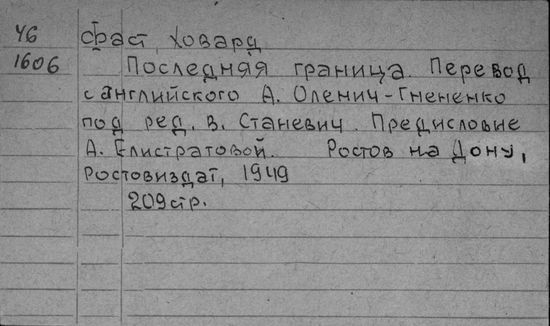 Ч6 Фаст, Ховард
1606 Последняя граница. Перевод
с английского А. Оленич-Гнененко
под ред. В. Станевич. Предисловие
А. Елистратовой. Ростов на Дону,
Ростовиздат, 1949
209 стр.